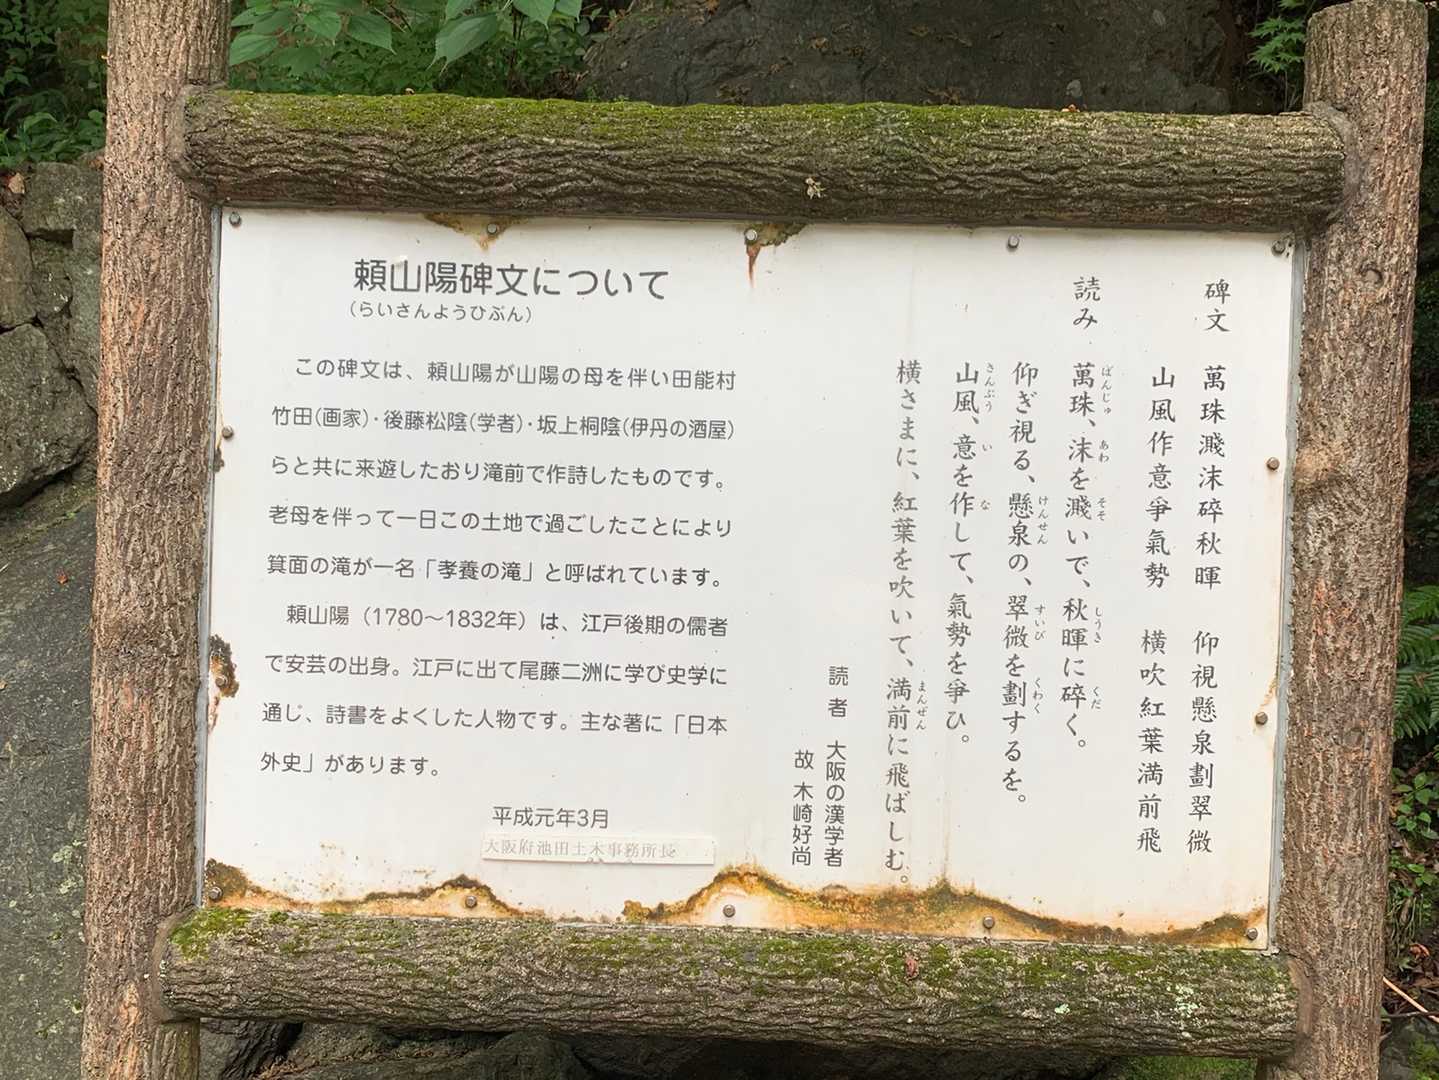 頼山陽碑文について
(らいさんようひぶん)
この碑文は、頼山陽が山陽の母を伴い田能村
竹田(画家)・後藤松陰(学者)・坂上桐陰(伊丹の酒屋)
らと共に来遊したおり滝前で作詩したものです。
老母を伴って一日この土地で過ごしたことにより
箕面の滝が一名「孝養の滝」と呼ばれています。
頼山陽（1780～1832年）は、江戸後期の儒者
で安芸の出身。江戸に出て尾藤二洲に学び史学に
通じ、詩書をよくした人物です。主な著に「日本
外史」があります。
平成元年3月
大阪府池田土木事務所長
碑文 萬珠濺沫碎秋暉 仰視懸泉劃翠微
山風作意爭氣勢 横吹紅葉満前飛
読み 萬珠、沫を濺いで、秋暉に碎く。
ばんじゅ あわ そそ しうき くだ
仰ぎ視る、懸泉の、翠微を劃するを。
けんせん すいび くわく
山風、意を作して、氣勢を爭ひ。
さんぷう い な
横さまに、紅葉を吹いて、満前に飛ばしむ。
まんぜん
読者 大阪の漢学者
故 木崎好尚